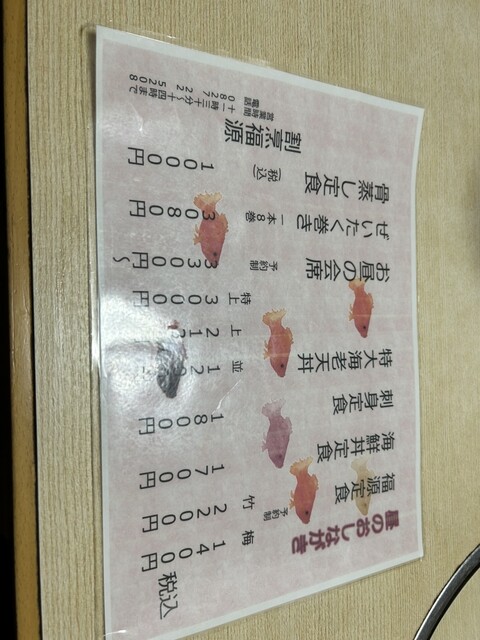 昼のおしながき
福源定食 梅 1400円
竹 2200円
予約制
海鮮丼定食 1700円
刺身定食 1800円
特大海老天丼 並
上
特上 3000円
お昼の会席 予約制 3300円〜
ぜいたく巻き 一本8巻 3080円
骨蒸し定食 1000円
(税込)
税込
割烹福源
営業時間
十一時三十分〜十四時まで
電話
0827 22 5208